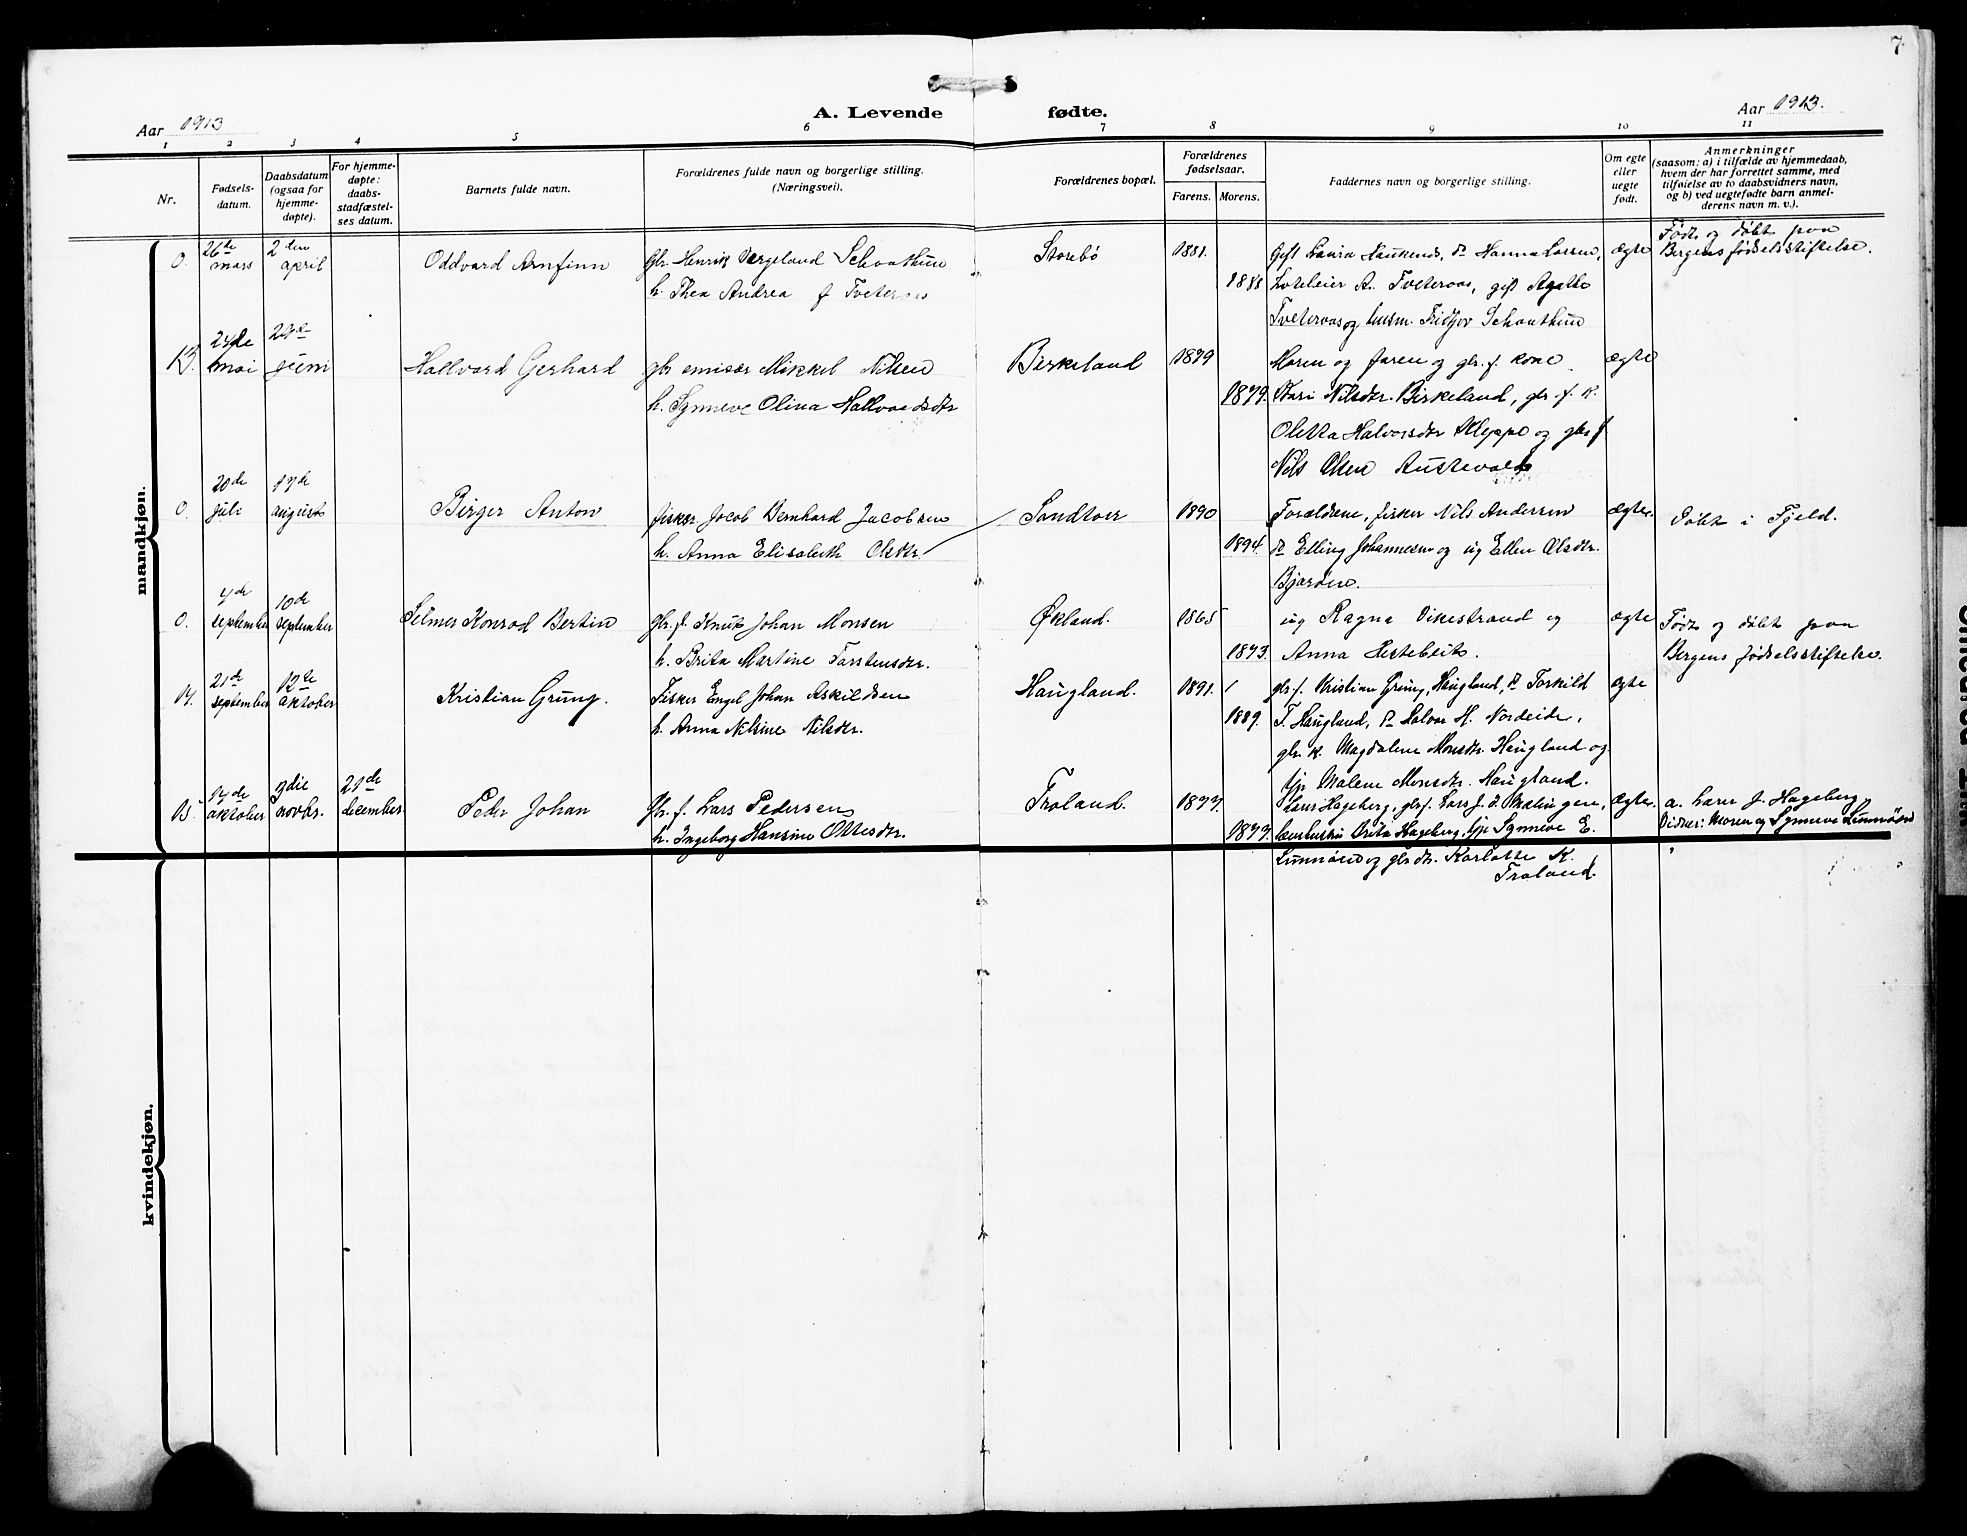 7
A. Levende fødte.
Aar 1913
Aar 1913.
1 2 3 4 5 6 7 8 9 10 11
Nr.
Fødsels-
datum.
Daabsdatum
(ogsaa for
hjemme-
døpte).
For hjemme-
døpte:
daabs-
stadfæstel-
ses datum.
Barnets fulde navn.
Forældrenes fulde navn og borgerlige stilling.
(Næringsvei).
Forældrenes bopæl.
Forældrenes
fødselsaar.
Farens. Morens.
Faddernes navn og borgerlige stilling.
Om egte
eller
uegte
født.
Anmerkninger
(saasom: a) i tilfælde av hjemmedaab,
hvem der har forrettet samme, med
tilføielse av to daabsvidners navn,
og b) ved uegtefødte barn anmel-
derens navn m. v.).
mandkjøn.
0. 26de mars 2den april Oddvard Arnfinn
gbr. Henrik Vergeland Schaathun
h. Thea Andrea f Tveteraas
Storebø 1881. 1888
Gift Laura Haukenes, do Hanna Larsen,
Hoteleier A. Tveteraas, gift Agathe
Tveteraas og husm. Fridtjov Schaathun
ægte
Født og døbt paa
Bergens fødselsstiftelse.
13. mai 29de juni Hallvard Gerhard
gbr emisær Mikkel Nilsen
h. Synneve Olina Hallvardsdtr
Birkeland 1879 1879.
Moren og faren og gbr. f. kone
Kari Nilsdtr. Birkeland, gbr. f. k.
Oletta Halvorsdtr Kleppe og gbr f
Nils Olsen Austevold
ægte
0. 20de juli 17de august Birger Anton
fisker Jacob Bernhard Jacobsen
h. Anna Elisabeth Olsdtr.
Sandtorv 1890 1894.
Forældrene, fisker Nils Andersen
do Elling Johannesen og ug Ellen Olsdtr.
Bjarøen.
ægte.
Døbt i Fjeld.
0. september 10de september Selmer Konrad Bertin
gbr. f. Knut Johan Monsen
h. Brita Martine Torstensdtr.
Økland. 1865 1873.
ug Ragna Vikestrand og
Anna Hesteblits.
ægte
Født og døbt paa
Bergens fødselsstiftelse.
14. 21de september 12te oktober Kristian Grung.
Fisker Engel Johan Askildsen
h. Anna Nelsine Nilsdtr.
Haugland. 1891. 1889.
gbr. f. Kristian Grung, Haugland, do Torkild
T. Haugland, do Halvor H. Nordeide,
gbr. k. Magdalene Monsdtr. Haugland og
tjp Malene Monsdtr. Haugland.
ægte
15. oktober novbr. 21de december Peder Johan
Gbr. f. Lars Pedersen
h. Ingeborg Hansine Ottesdtr.
Troland. 1877. 1877.
Lars Hageberg, gbr. f. Lars J. do
Brita Hageberg, tjp Synneve E.
Linnøen og gbr dtr. Karlotte K.
Troland.
ægte.
a. Lærer J. Hageberg
Vidner: Moren og Synneve Linnøen
kvindekjøn.